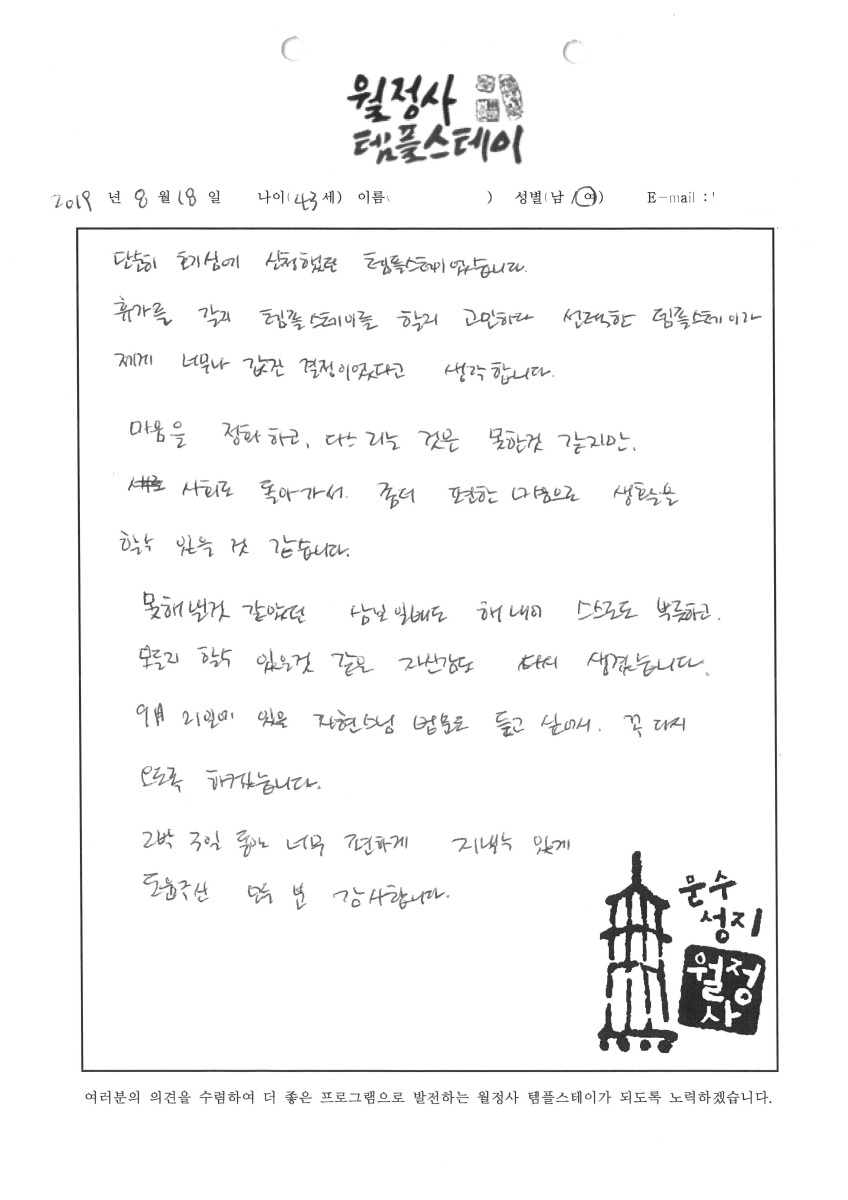 월정사
템플스테이
2019 년 8 월 18 일 나이(43세) 이름( ) 성별(남/여) E-mail :
단순히 호기심에 신청했던 템플스테이였습니다.
휴가를 갈지 템플스테이를 할지 고민하다 선택한 템플스테이가
제게 너무나 값진 결정이였다고 생각합니다.
마음을 정화하고, 다스리는 것은 못한것 같지만,
사회로 돌아가서 좀더 편한 마음으로 생활을
할수 있을 것 같습니다.
못해낼것 같았던 삼보일배도 해내어 스스로도 뿌듯하고.
모든지 할수 있을것 같은 자신감도 다시 생겼습니다.
9月 21일에 있을 자현스님 법문도 듣고 싶어서. 꼭 다시
오도록 하겠습니다.
2박 3일 동안 너무 편하게 지낼수 있게
도움주신 모두 분 감사합니다.
문수
성지
월정
사
여러분의 의견을 수렴하여 더 좋은 프로그램으로 발전하는 월정사 템플스테이가 되도록 노력하겠습니다.